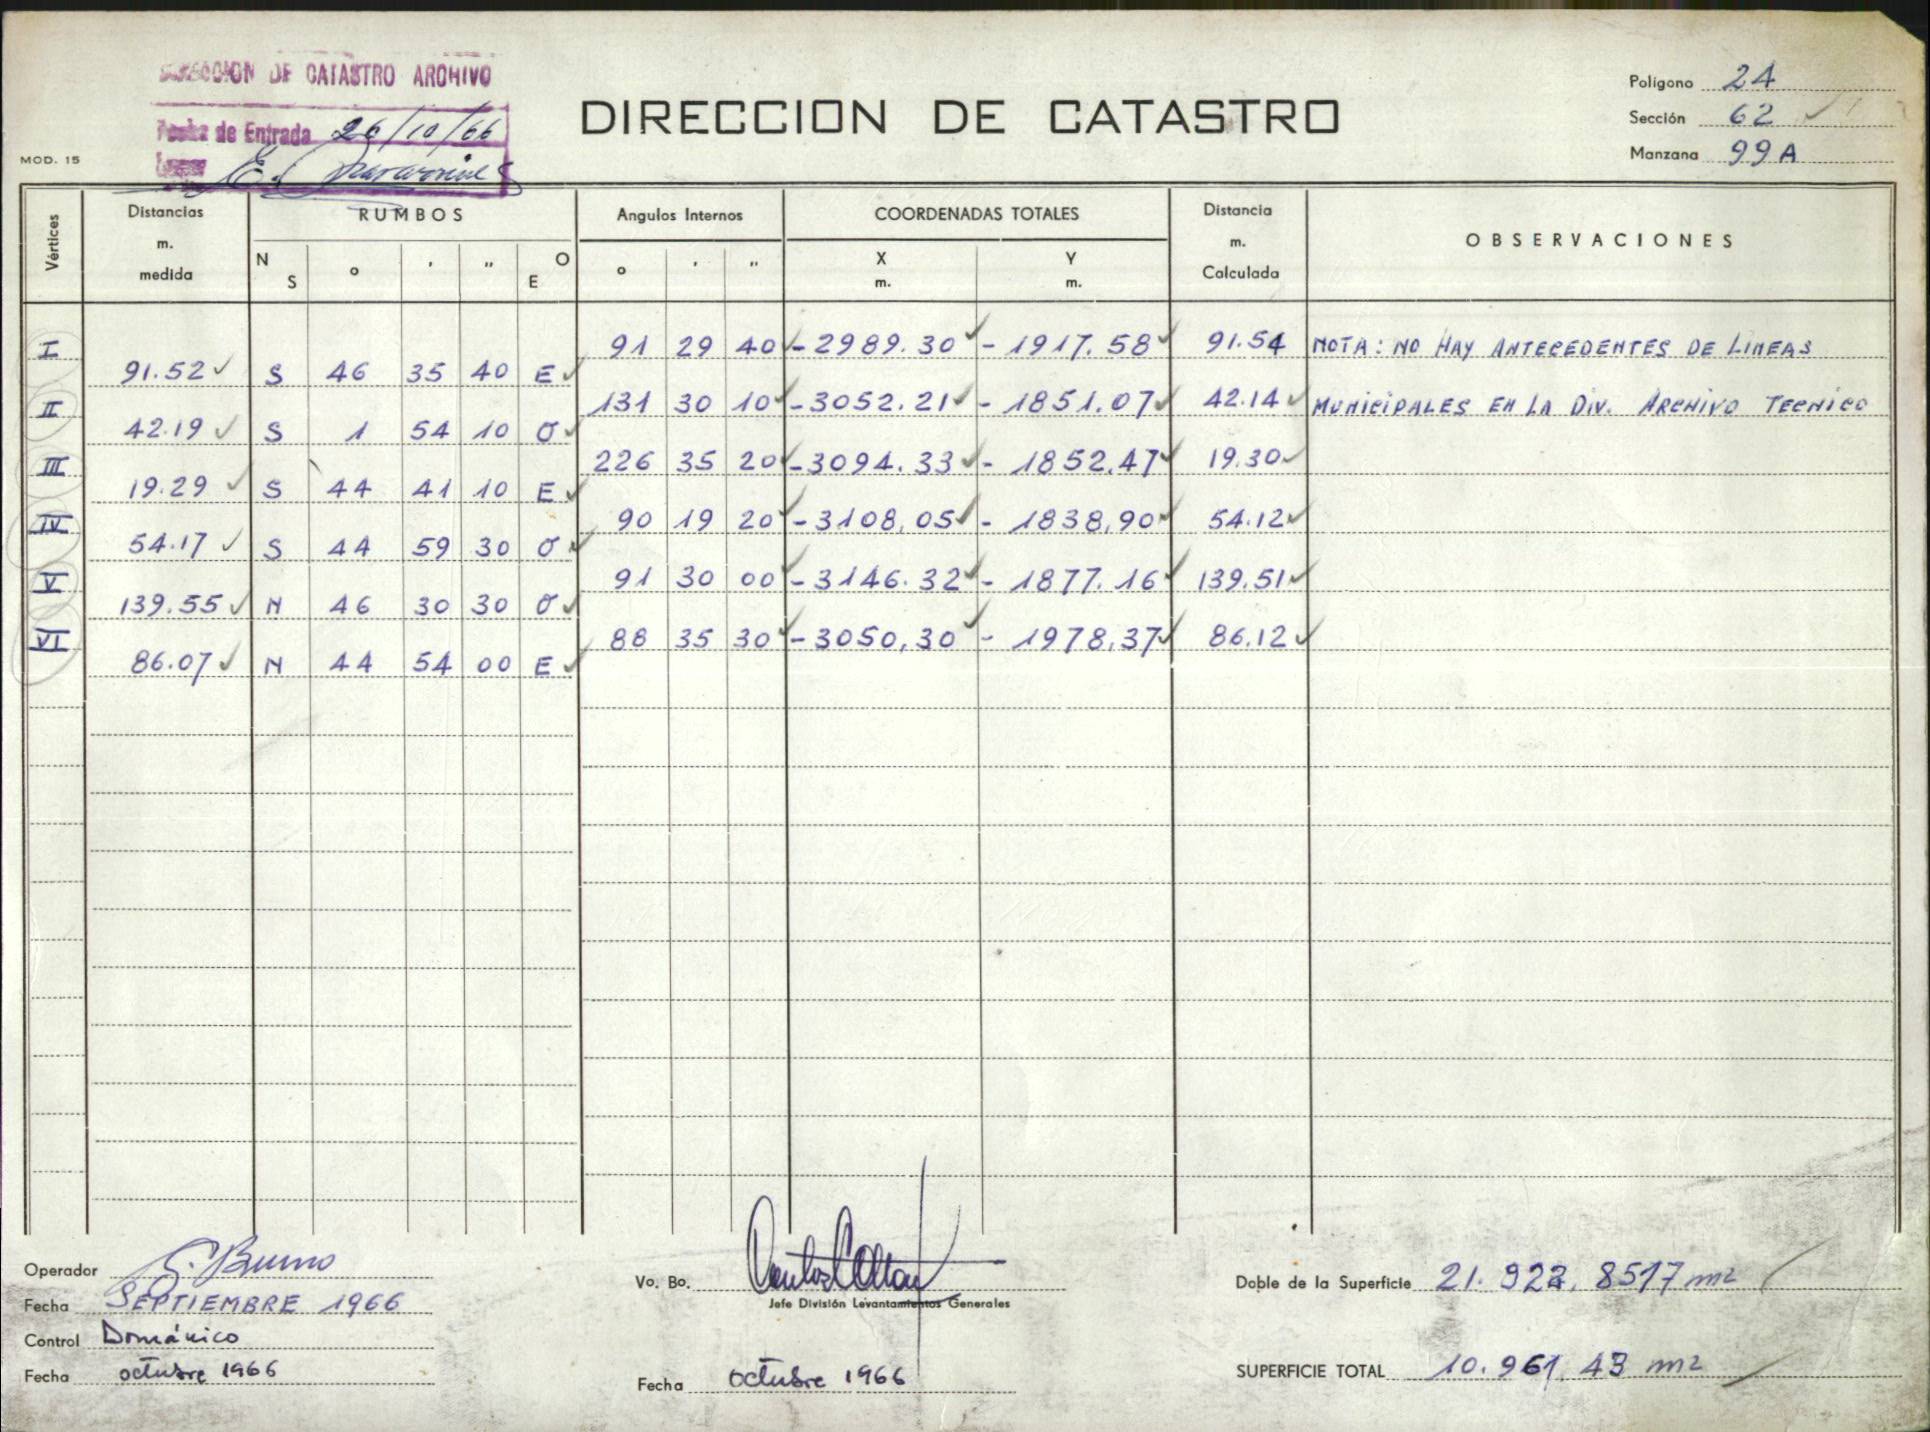 DIRECCION DE CATASTRO ARCHIVO
Fecha de Entrada 26/10/66
E.
MOD. 15
DIRECCION DE CATASTRO
Polígono 24
Sección 62
Manzana 99A
Vértices Distancias m. medida RUMBOS Angulos Internos COORDENADAS TOTALES Distancia m. Calculada OBSERVACIONES
N S o ' " O E o ' " X m. Y m.
I 91 29 40 -2989.30 - 1917.58 91.54 NOTA: NO HAY ANTECEDENTES DE LINEAS
91.52 S 46 35 40 E
II 131 30 10 -3052.21 - 1851.07 42.14 MUNICIPALES EN LA DIV. ARCHIVO TECNICO
42.19 S 1 54 10 O
III 226 35 20 -3094.33 - 1852.47 19.30
19.29 S 44 41 10 E
IV 90 19 20 -3108,05 - 1838,90 54.12
54.17 S 44 59 30 O
V 91 30 00 -3146.32 - 1877.16 139.51
139.55 N 46 30 30 O
VI 88 35 30 -3050,30 - 1978,37 86.12
86.07 N 44 54 00 E
Operador G. Bueno
Fecha SEPTIEMBRE 1966
Control Dománico
Fecha octubre 1966
Vo. Bo.
Jefe División Levantamientos Generales
Fecha octubre 1966
Doble de la Superficie 21.922,8517 m2
SUPERFICIE TOTAL 10.961,43 m2